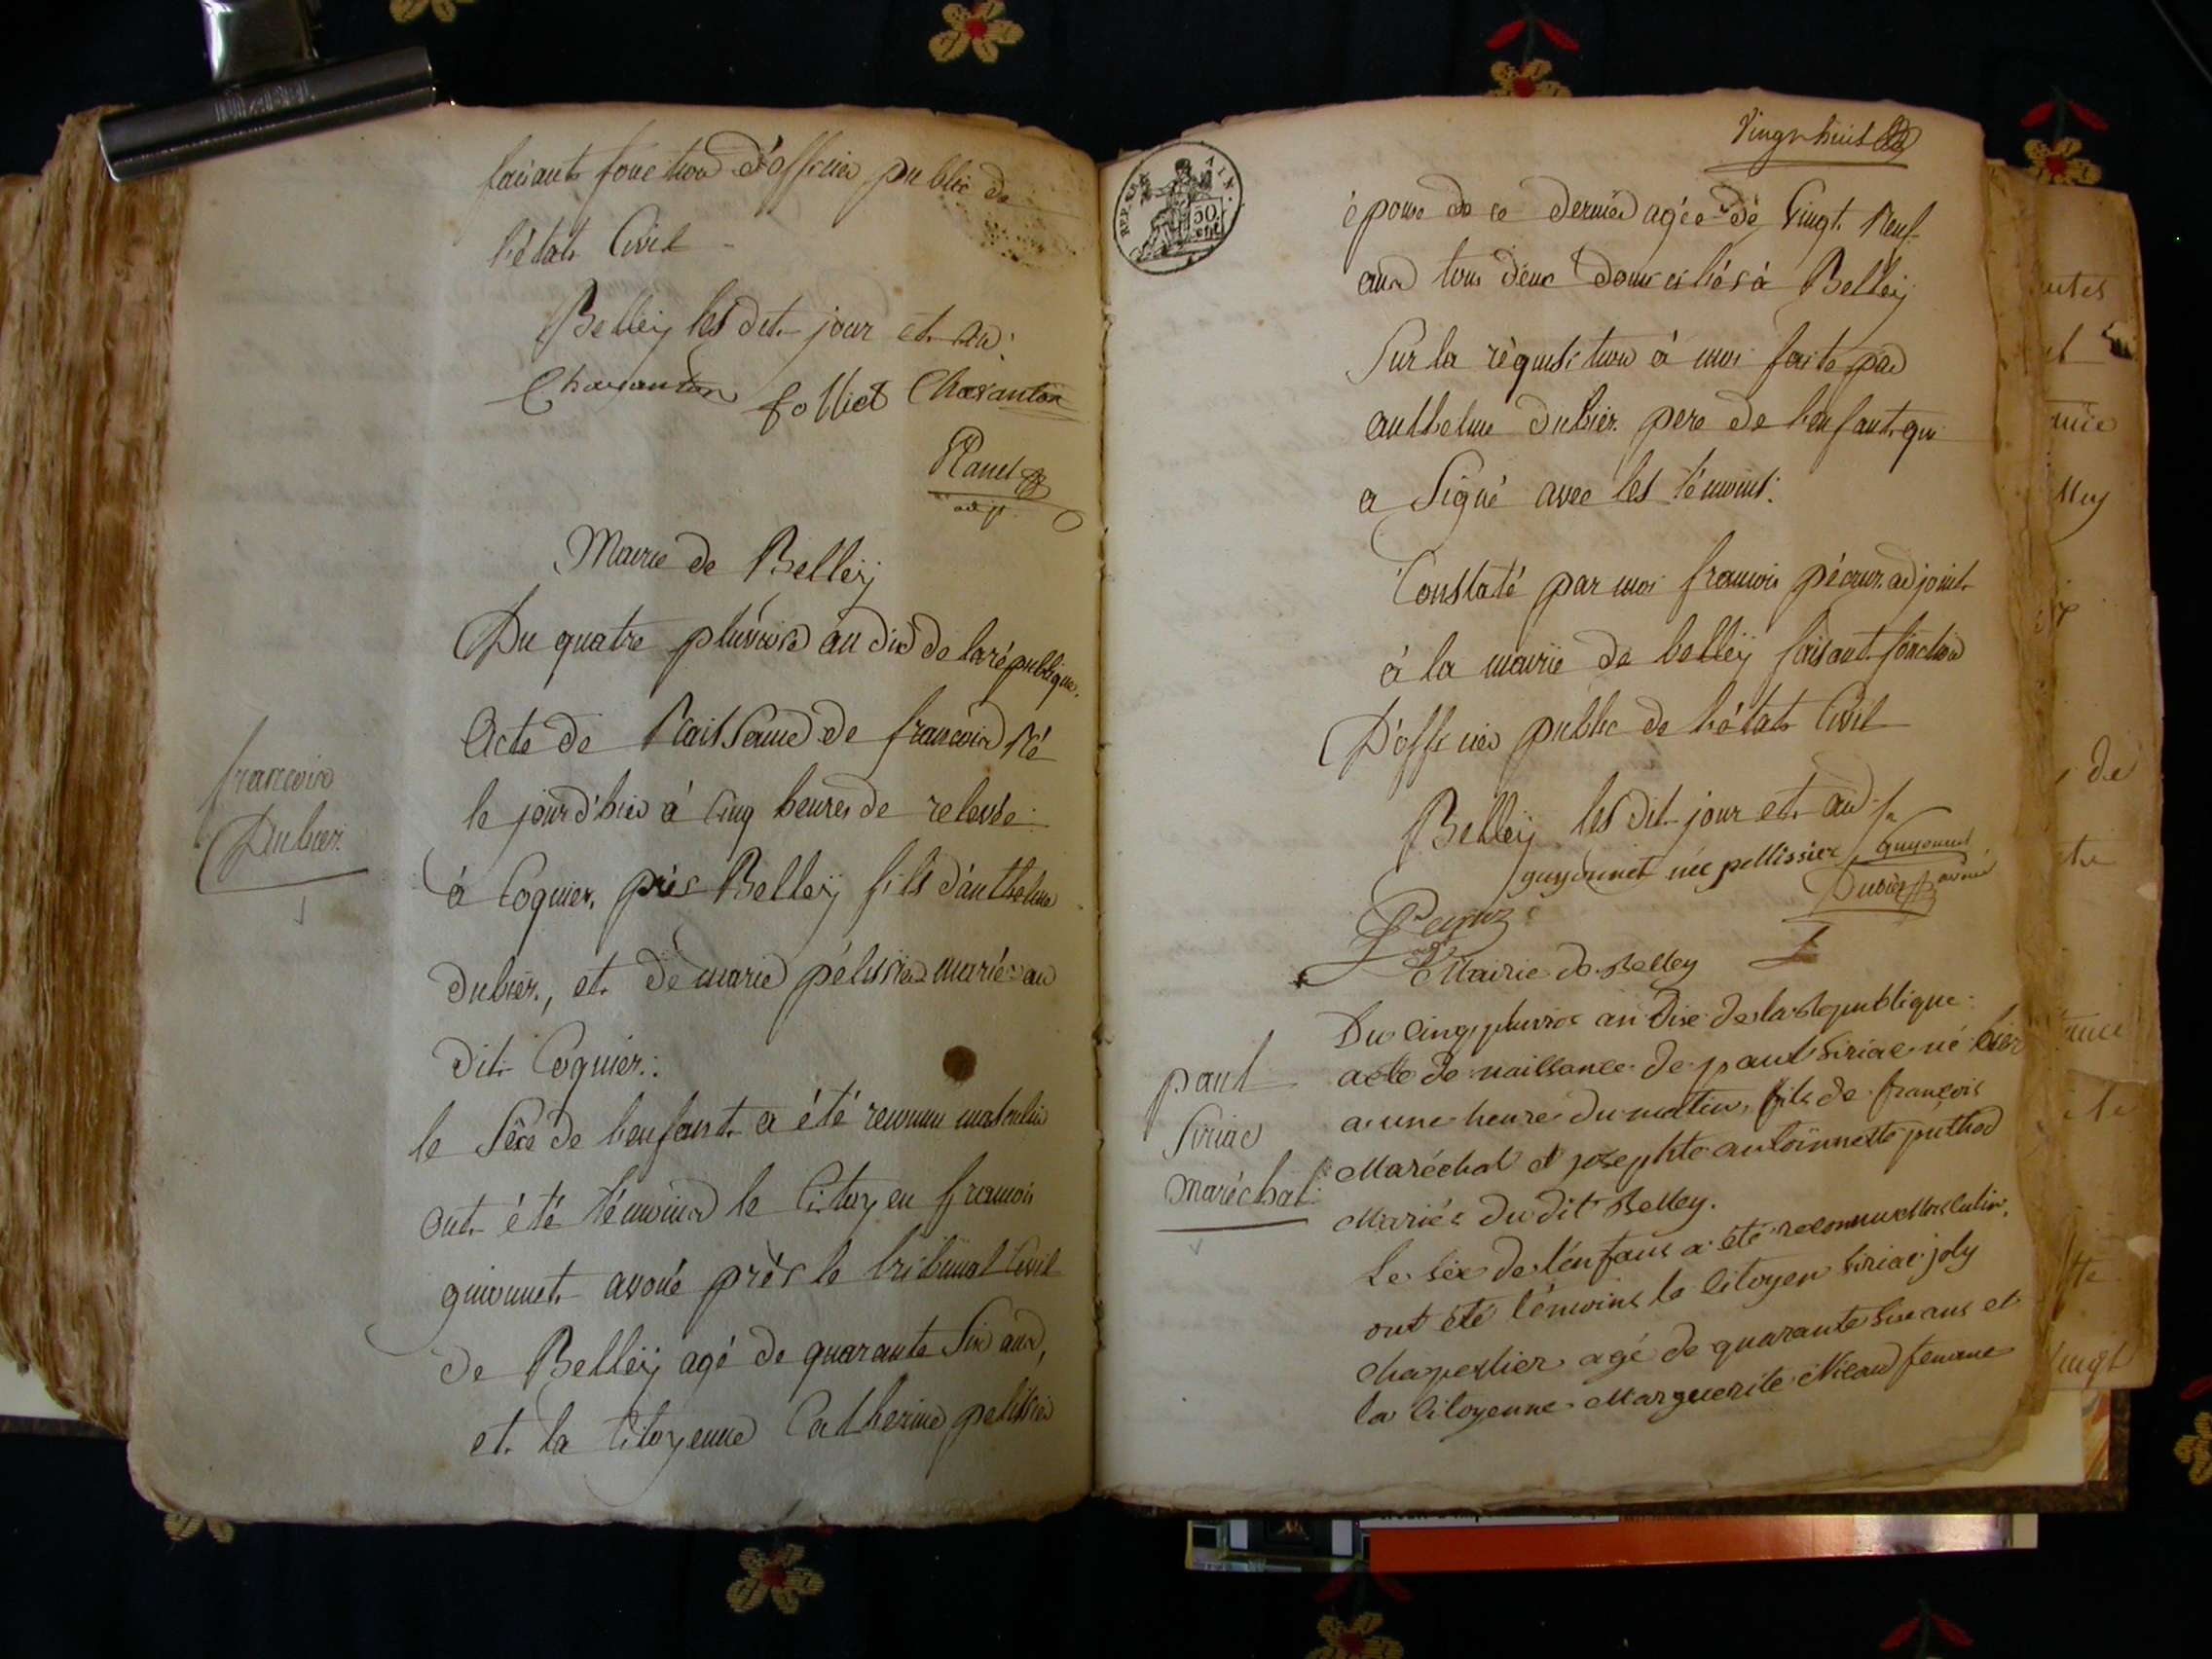 faisant fonction d'officier public de
l'état Civil
Belley les dit jour et an.
Chavanton folliet Chavanton
Rauel
adjt
Mairie de Belleÿ
Du quatre pluviose an dix de la république.
Acte de Naissance de francois Né
le jour d'hier à Cinq heures de relevée
à Coquier, près Belleÿ fils d'anthelme
dubier, et de marie pélissier mariés au
dit Coquier.
le Sexe de l'enfant a été reconnu masculin
ont été témoins le Citoyen francois
guionnet avoué près le tribunal Civil
de Belleÿ agé de quarante Six ans,
et la Citoyenne Catherine pelissier
francois
Dubier
Vingt huit
REP. FRA. AIN.
50
cent
épouse de ce dernier agée de Vingt Neuf
ans tous deux domiciliés à Belleÿ
Sur la réquisition à moi faite par
anthelme dubier pere de l'enfant qui
a Signé avec les témoins.
Constaté par moi francois pécruz adjoint
à la mairie de belleÿ faisant fonction
D'officier public de l'état Civil
Belleÿ les dit jour et an
guyonnet née pellissier guyonnet
Dubier avoué
Pecruz
Mairie de Belley
Du Cinq pluviose an Dix de la République
acte de naissance de paul Siriac né hier
a une heure du matin, fils de françois
Maréchal et josephte antoinnette puthod
Mariés du dit Belley.
Le sexe de l'enfant a été reconnu Masculin,
ont été témoins le Citoyen Siriac joly
chapellier agé de quarante six ans et
la Citoyenne Marguerite Nicaud femme
paul
Siriac
maréchal